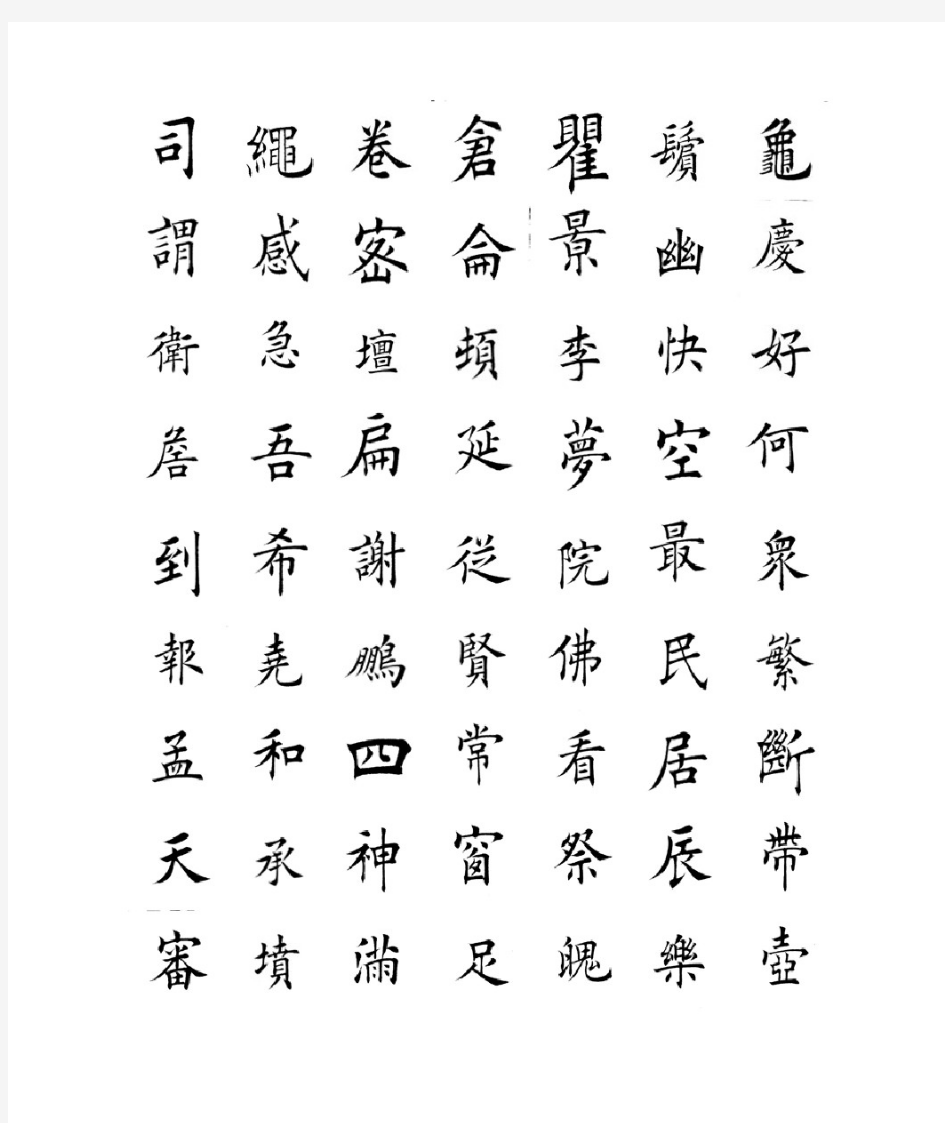 龜慶好何衆繁斷帶壺
鬢幽快空最民居辰樂
瞿景李夢院佛看祭魄
倉侖頓延従賢常窗足
卷密壇扁謝鵬四神滿
繩感急吾希堯和承墳
司謂衛詹到報孟天審